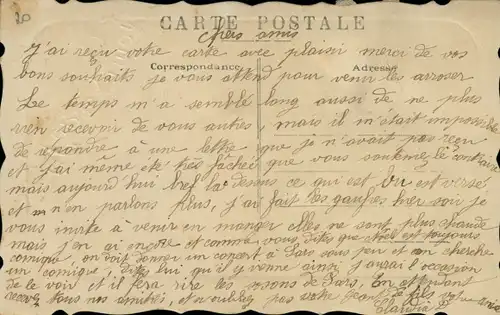 CARTE POSTALE
chers amis
J'ai reçu votre carte avec plaisir merci de vos
bons souhaits je vous attend pour venir les arroser
Correspondance Adresse
Le temps m'a semblé long aussi de ne plus
rien recevoir de vous autres, mais il m'était impossible
de répondre à une lettre que je n'avait pas reçu
et j'ai même été très fâchée que vous souteniez le contraire
mais aujourd'hui bref la dessus ce qui est bu est versé
et n'en parlons plus, j'ai fait les gaufres hier soir je
vous invite à venir en manger elles ne sont plus chaude
mais j'en ai encore et comme vous dites que est toujours
comique, on doit donner un concert à Sars sous peu et on cherche
un comique, dites lui qu'il y vienne ainsi j'aurai l'occasion
de le voir et il fera rire les sosons de Sars. En attendant
recevez tous nos amitiés, et n'oubliez pas votre de fils votre amie
Claudia
20